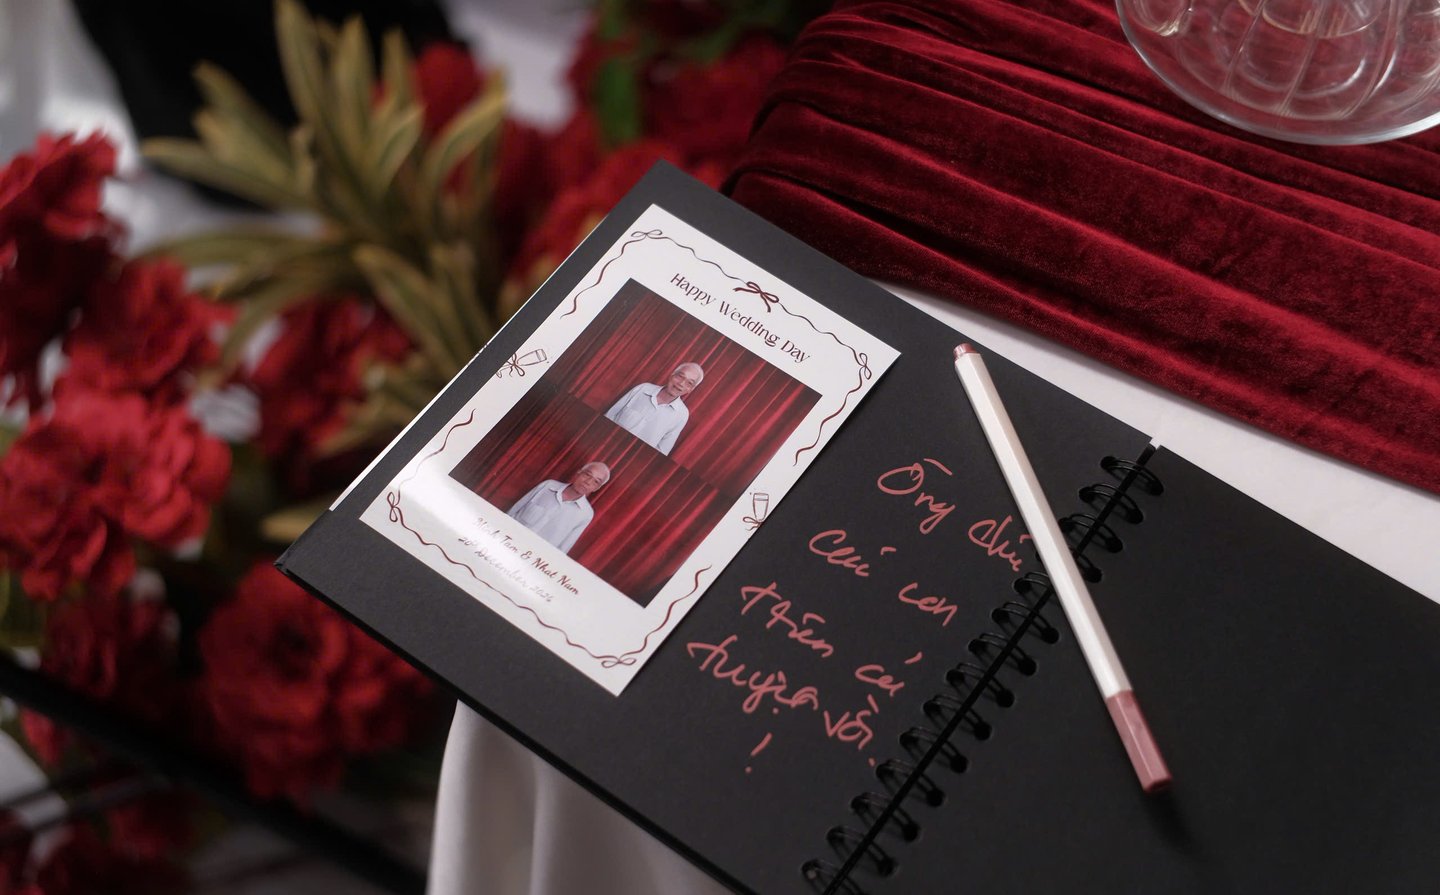 Happy Wedding Day
Minh Tam & Nhat Nam
20th December,
Ông chúc
các con
trên cả
tuyệt vời.
!